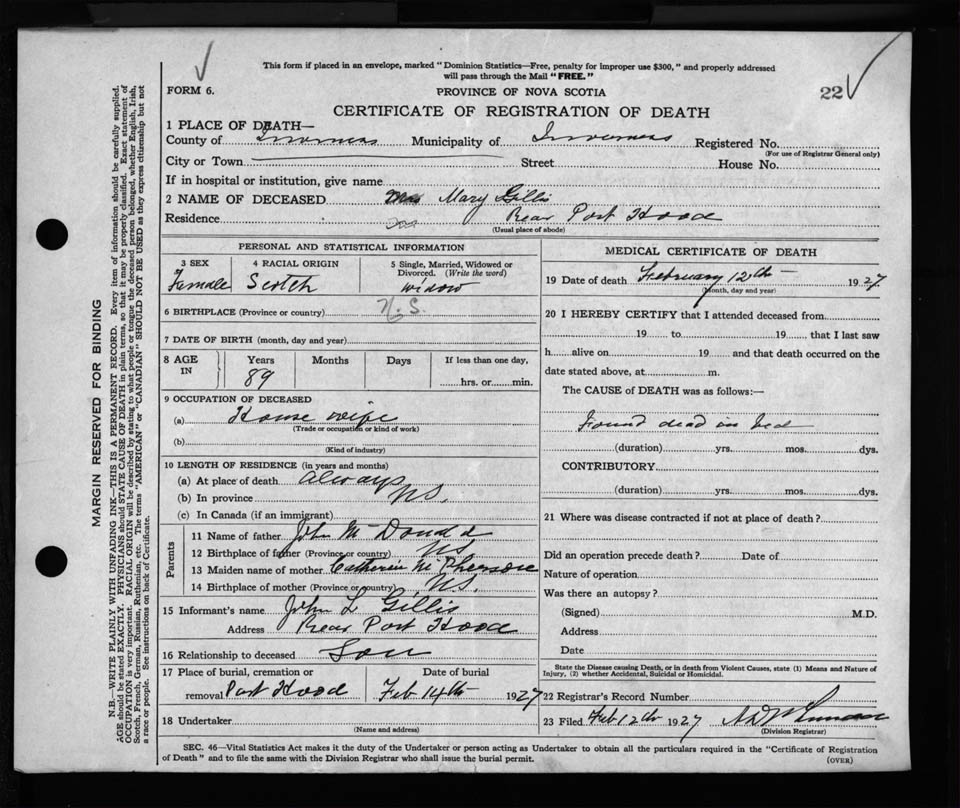 This form if placed in an envelope, marked "Dominion Statistics—Free, penalty for improper use $300," and properly addressed
will pass through the Mail "FREE."
FORM 6.
PROVINCE OF NOVA SCOTIA
22
CERTIFICATE OF REGISTRATION OF DEATH
1 PLACE OF DEATH—
County of Inverness Municipality of Inverness Registered No.
(For use of Registrar General only)
City or Town Street House No.
If in hospital or institution, give name
2 NAME OF DECEASED Mrs Mary Gillis
Residence Rear Port Hood
(Usual place of abode)
PERSONAL AND STATISTICAL INFORMATION
3 SEX
Female
4 RACIAL ORIGIN
Scotch
5 Single, Married, Widowed or
Divorced. (Write the word)
widow
6 BIRTHPLACE (Province or country) N.S.
7 DATE OF BIRTH (month, day and year)
8 AGE IN
Years Months Days If less than one day,
89 hrs. or min.
9 OCCUPATION OF DECEASED
(a) House wife
(Trade or occupation or kind of work)
(b)
(Kind of industry)
10 LENGTH OF RESIDENCE (in years and months)
(a) At place of death always
(b) In province NS.
(c) In Canada (if an immigrant)
Parents
11 Name of father John McDonald
12 Birthplace of father (Province or country) NS
13 Maiden name of mother Catherine McPherson
14 Birthplace of mother (Province or country) NS.
15 Informant's name John L Gillis
Address Rear Port Hood
16 Relationship to deceased Son
17 Place of burial, cremation or Date of burial
removal Port Hood Feb 14th 1927
18 Undertaker
(Name and address)
MEDICAL CERTIFICATE OF DEATH
19 Date of death February 12th 1927
(Month, day and year)
20 I HEREBY CERTIFY that I attended deceased from
19 to 19 that I last saw
h alive on 19 and that death occurred on the
date stated above, at m.
The CAUSE of DEATH was as follows:—
Found dead in bed
(duration) yrs. mos. dys.
CONTRIBUTORY
(duration) yrs. mos. dys.
21 Where was disease contracted if not at place of death?
Did an operation precede death? Date of
Nature of operation
Was there an autopsy?
(Signed) M.D.
Address
Date
State the Disease causing Death, or in death from Violent Causes, state (1) Means and Nature of
Injury, (2) whether Accidental, Suicidal or Homicidal.
22 Registrar's Record Number
23 Filed Feb 12th 1927
(Division Registrar)
SEC. 46—Vital Statistics Act makes it the duty of the Undertaker or person acting as Undertaker to obtain all the particulars required in the "Certificate of Registration
of Death" and to file the same with the Division Registrar who shall issue the burial permit.
(OVER)
MARGIN RESERVED FOR BINDING
N.B.—WRITE PLAINLY WITH UNFADING INK—THIS IS A PERMANENT RECORD. Every item of information should be carefully supplied.
AGE should be stated EXACTLY. PHYSICIANS should STATE CAUSE OF DEATH in plain terms, so that it may be properly classified. Exact statement of
OCCUPATION is very important. RACIAL ORIGIN will be described by stating to what people or tongue the deceased person belonged, whether English, Irish,
Scotch, French, German, Russian, Ruthenian, etc. The terms "AMERICAN" or "CANADIAN" SHOULD NOT BE USED as they express citizenship but not
a race or people. See instructions on back of Certificate.